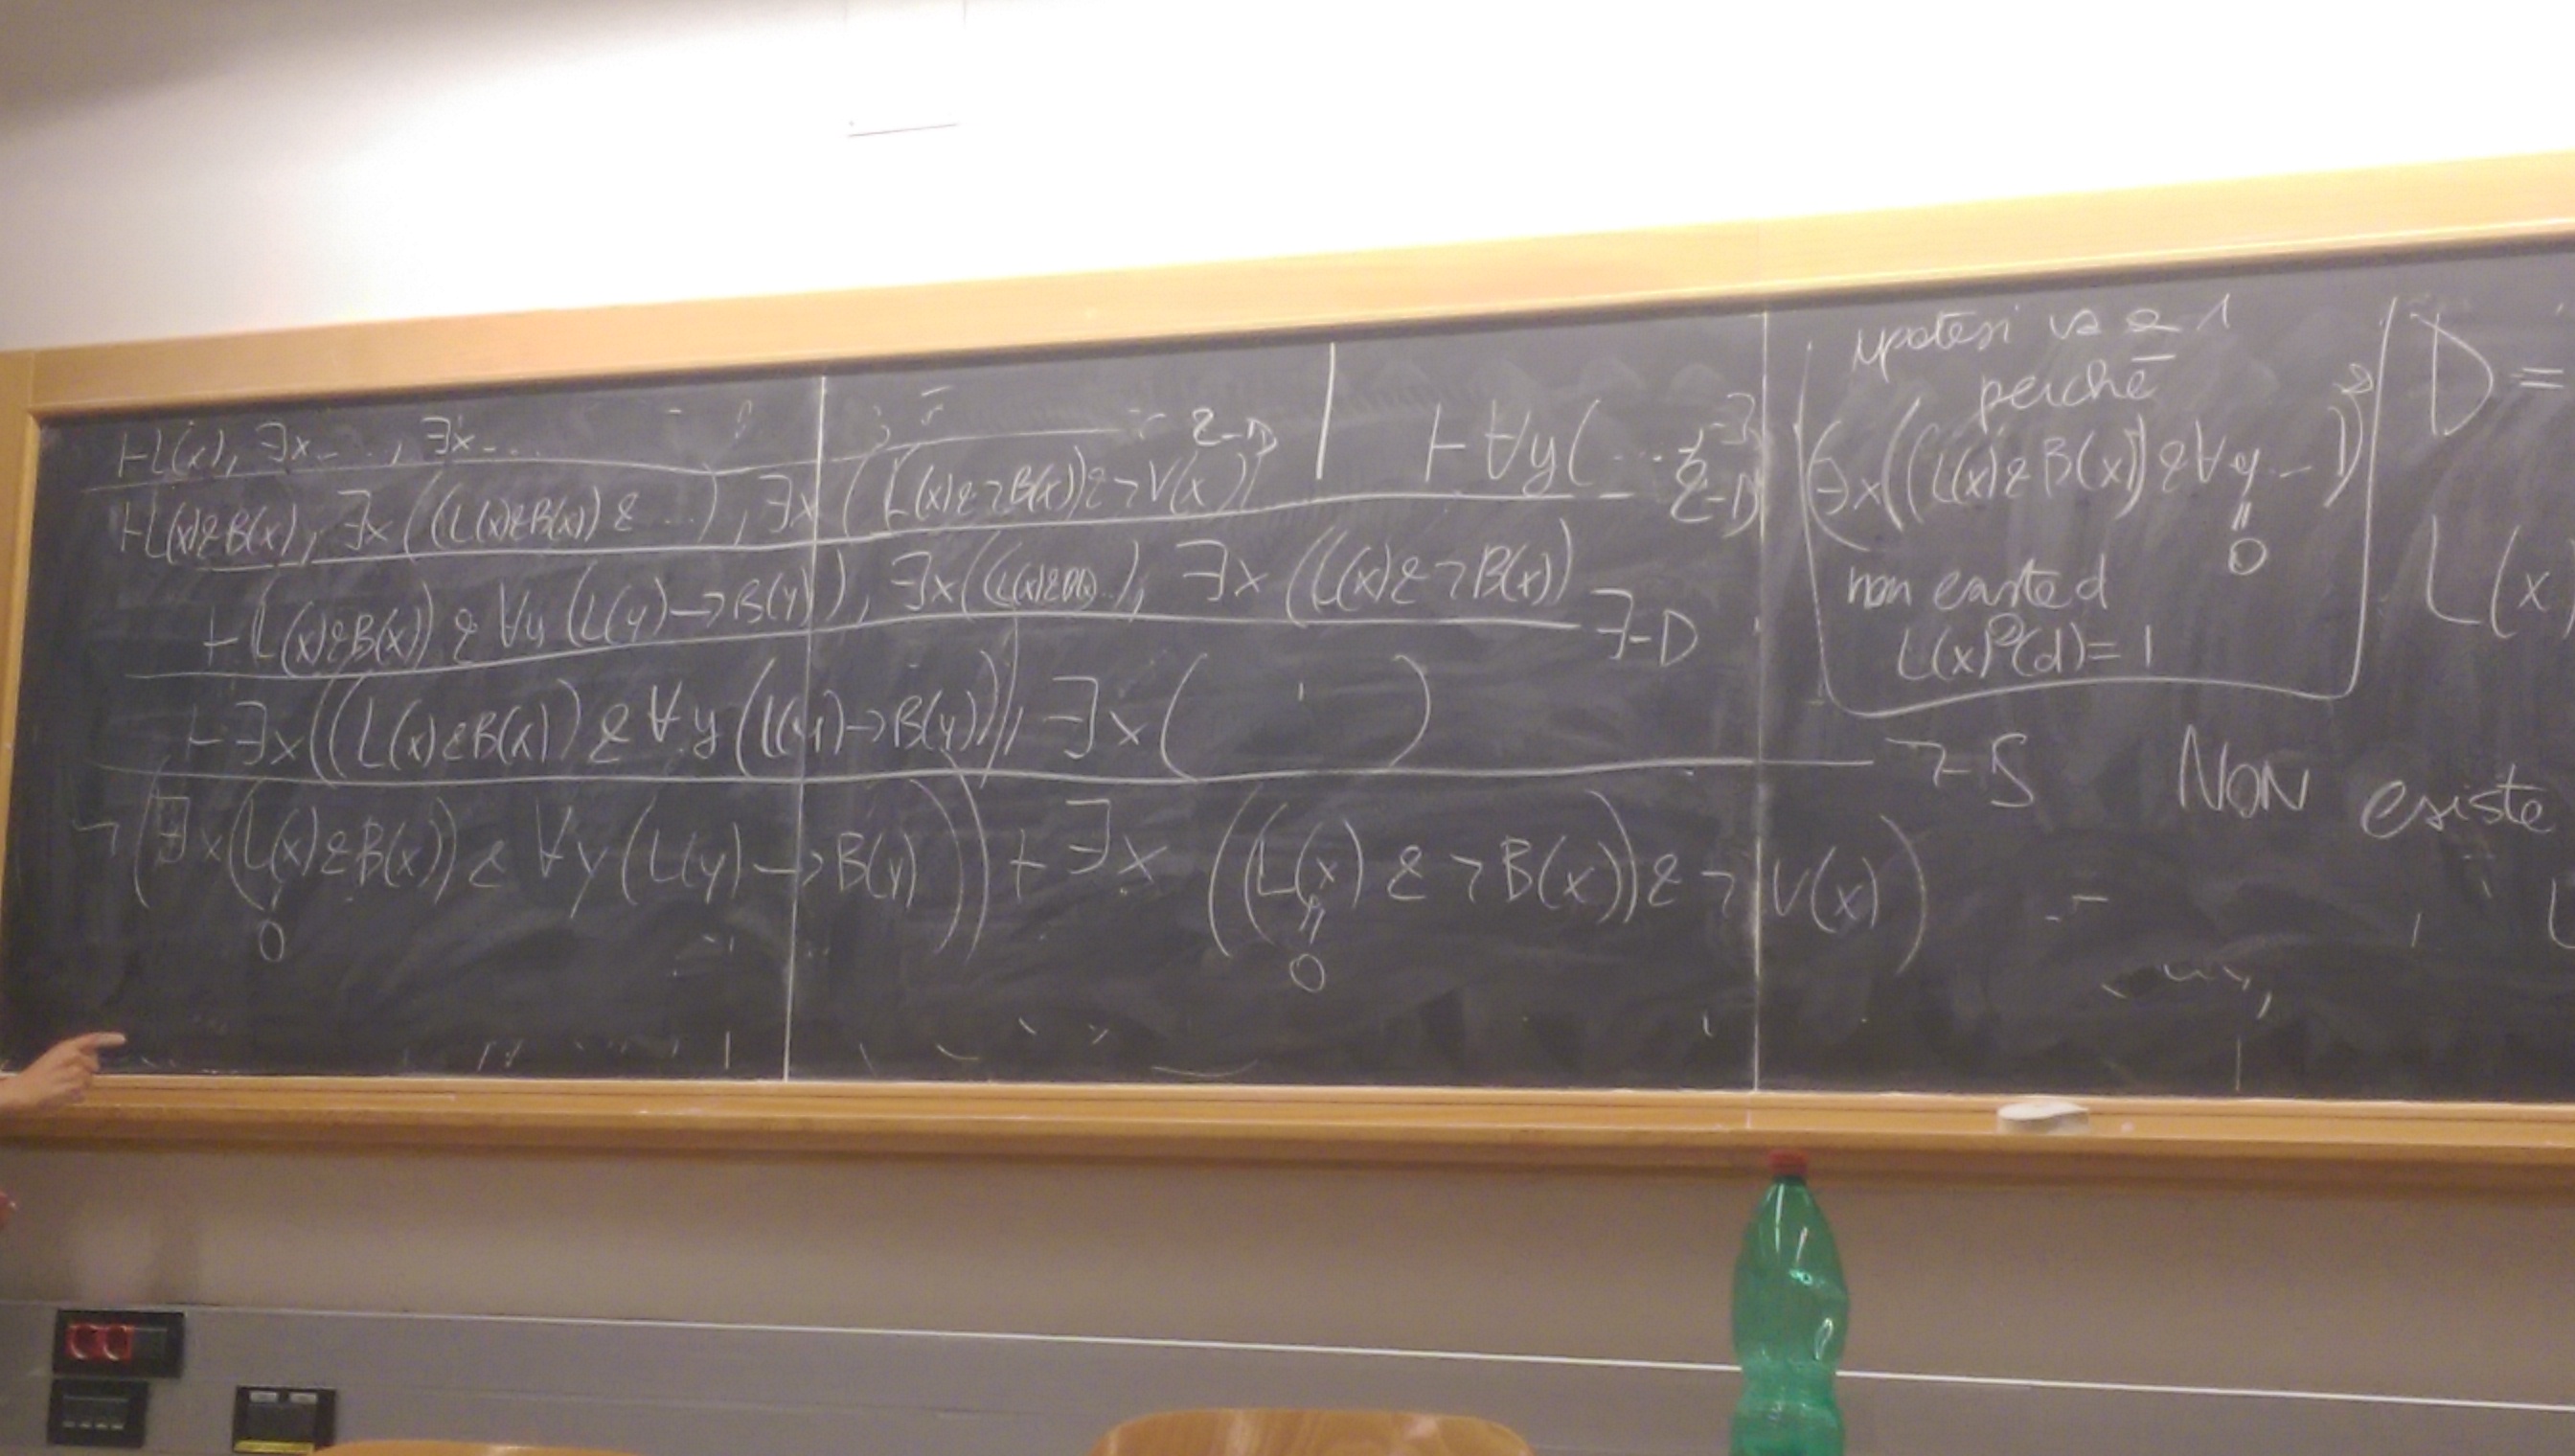 ⊢L(x), ∃x..., ∃x...
&-D
⊢L(x)&B(x), ∃x((L(x)&B(x)) & ...), ∃x(L(x)&¬B(x))&¬V(x))
⊢∀y(...
&-D
⊢(L(x)&B(x)) & ∀y(L(y)→B(y)), ∃x((L(x)&B(x)...), ∃x((L(x)&¬B(x))
∃-D
⊢∃x((L(x)&B(x)) & ∀y(L(y)→B(y))), ∃x( )
¬-S
¬(∃x(L(x)&B(x)) & ∀y(L(y)→B(y))) ⊢ ∃x((L(x) & ¬B(x)) & ¬V(x))
0
0
ipotesi va a 1
perché
∃x((L(x)&B(x)) & ∀y ...)
0
non esiste d
L(x)ᴰ(d)=1
D =
L(x
NON esiste